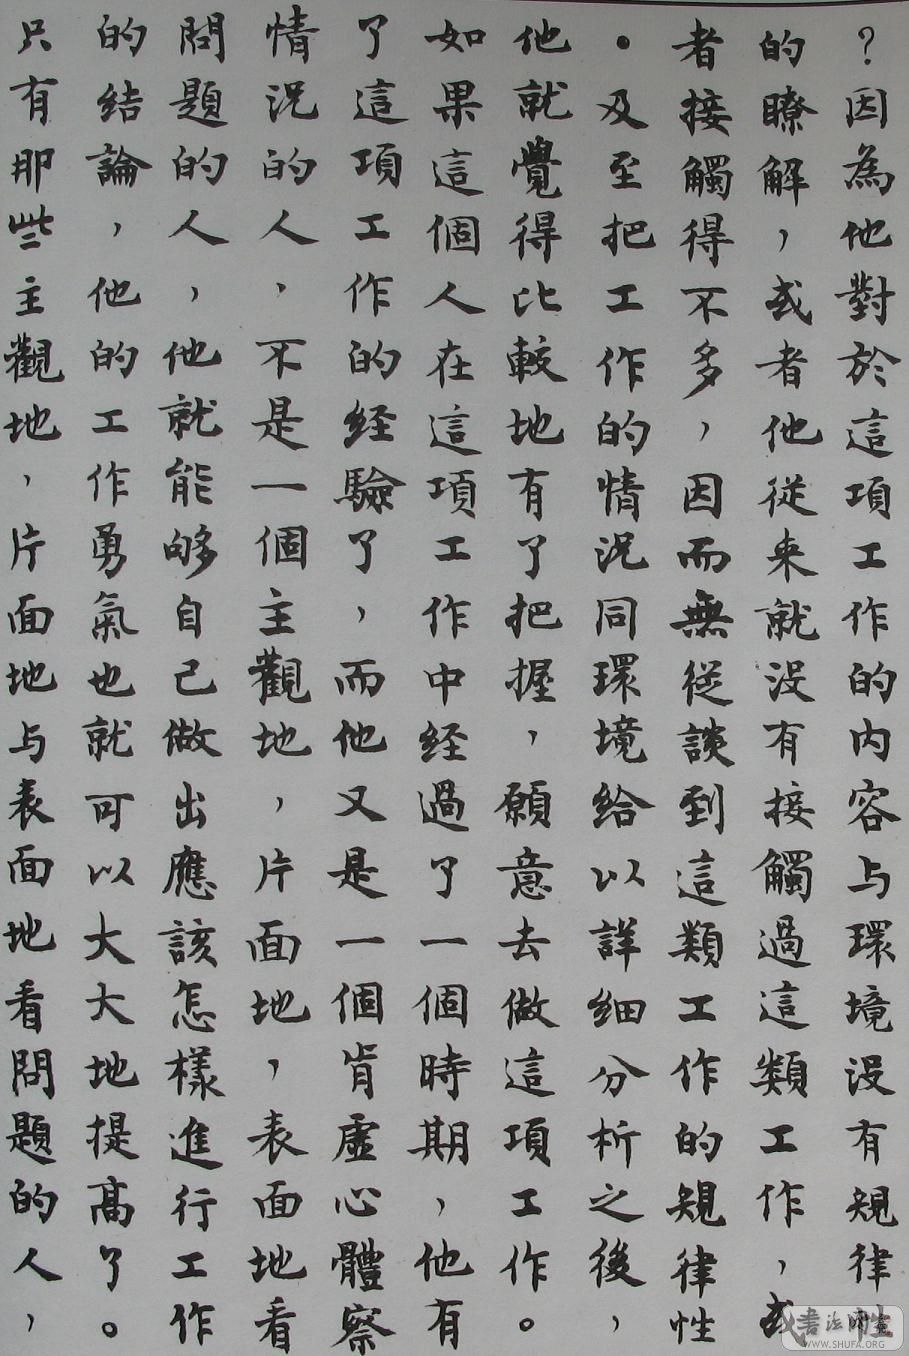 ？因為他對於這項工作的内容与環境没有規律性
的瞭解，或者他從来就没有接觸過這類工作，或
者接觸得不多，因而無從談到這類工作的規律性
。及至把工作的情況同環境给以詳細分析之後，
他就覺得比較地有了把握，願意去做這項工作。
如果這個人在這項工作中经過了一個時期，他有
了這項工作的经驗了，而他又是一個肯虚心體察
情況的人，不是一個主觀地，片面地，表面地看
問題的人，他就能够自己做出應該怎樣進行工作
的结論，他的工作勇氣也就可以大大地提高了。
只有那些主觀地，片面地与表面地看問題的人，
書法网
WWW.SHUFA.ORG